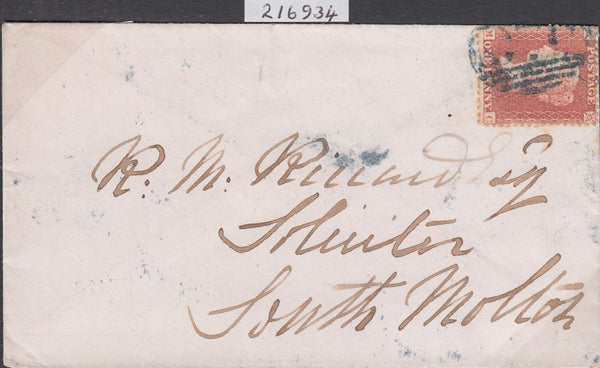 216934
POSTAGE
ONE PENNY
M C
R. M. Riccard Esqr
Solicitor
South Molton